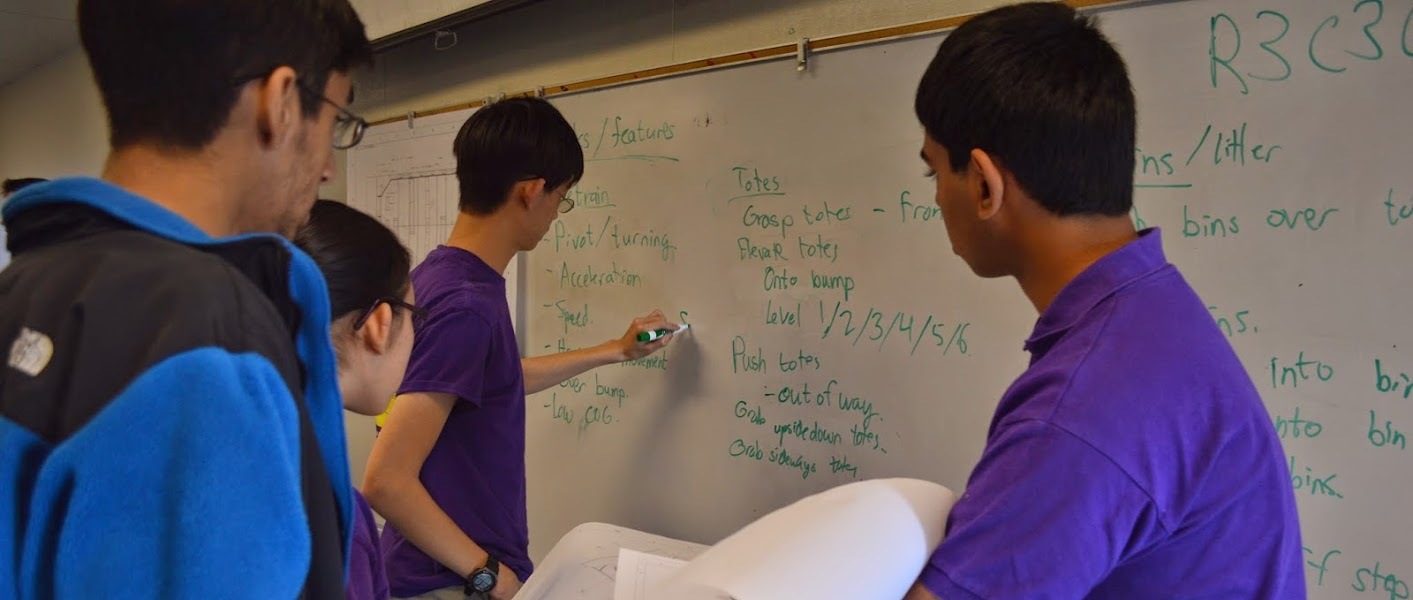 /features
train
-Pivot/turning,
-Acceleration
-Speed.
movement
over bump.
-Low COG.
S
Totes
Grasp totes - from
Elevate totes
Onto bump
Level 1/2/3/4/5/6.
Push totes
-out of way.
Grab upsidedown totes.
Grab sideways totes
R3C3
ns/litter
bins over
ns.
into
nto bin
bins.
f step